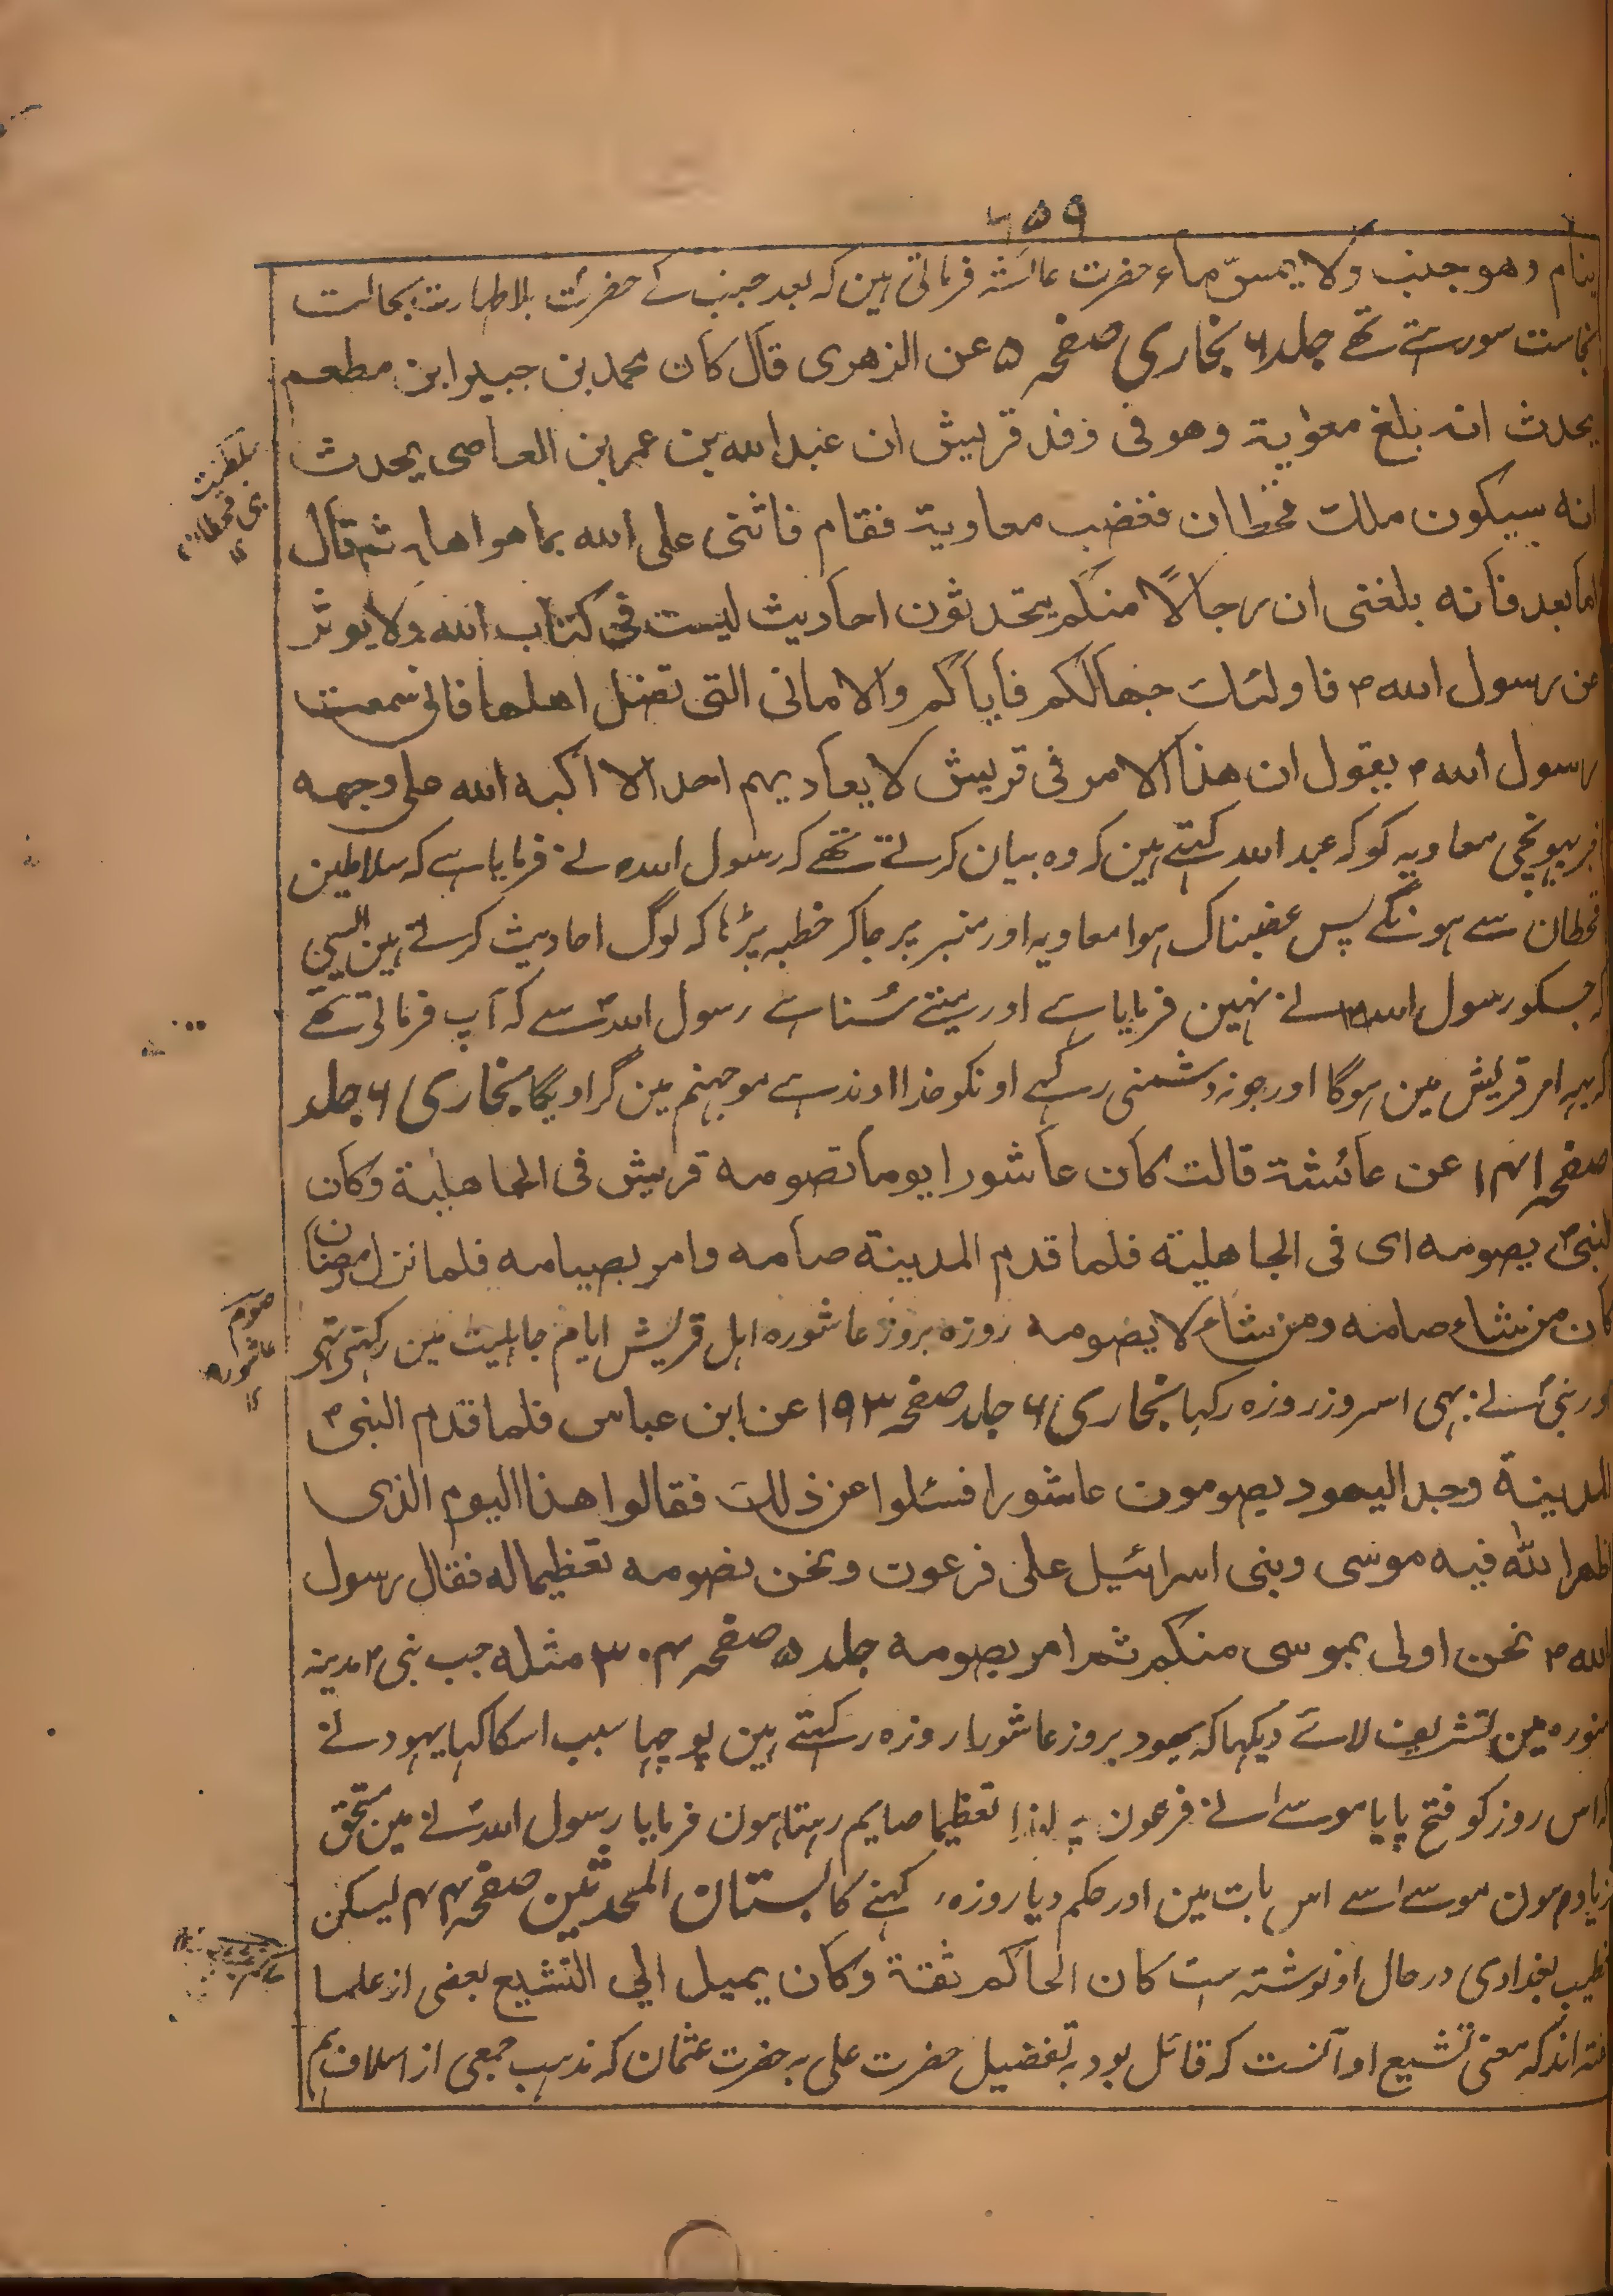 ۶۵۹
ینام وهو جنب ولا یمسّ ماء حضرت عائشہ فرماتی ہین کہ بعد جنب کے حضرتؐ بلا طہارت بحالت
نجاست سورہتے تھے جلد ۶ بخاری صفحہ ۵ عن الزهری قال کان محمد بن جبیر ابن مطعم
یحدث انہ بلغ معویة وهو فی وفد قریش ان عبد الله بن عمر بن العاصی یحدث
انه سیکون ملك قحطان فغضب معاویة فقام فاثنی علی الله بما هو اهله ثم قال
اما بعد فانه بلغنی ان رجالًا منکم یتحدثون احادیث لیست فی کتاب الله ولا یوثر
من رسول الله ؐ فاولئك جهالکم فایاکم والامانی التی تضل اهلها فانی سمعت
رسول الله ؐ یقول ان هذا الامر فی قریش لا یعادیهم احد الا اکبه الله علی وجهه
خبر پہونچی معاویہ کو کہ عبد اللہ کہتے ہین کہ وہ بیان کرتے تھے کہ رسول اللہ نے فرمایا ہے کہ سلاطین
قحطان سے ہونگے پس غضبناک ہوا معاویہ اور منبر پر جا کر خطبہ پڑہا کہ لوگ احادیث کرتے ہین ایسی
کہ جسکو رسول اللہ ؐ نے نہین فرمایا ہے اور مینے سُنا ہے رسول اللہؐ سے کہ آپ فرماتے تھے
کہ یہہ امر قریش مین ہوگا اور جو دشمنی رکہے اونکو خدا اوندہے موجہنم مین گراویگا بخاری ۶ جلد
صفحہ ۱۴۱ عن عائشة قالت کان عاشورا یوما تصومه قریش فی الجاهلیة وکان
النبیؐ یصومه ای فی الجاهلیة فلما قدم المدینة صامه وامر بصیامه فلما نزل رمضان
کان من شاء صامه ومن شاء لا یصومه روزہ بروز عاشورہ اہل قریش ایام جاہلیت مین رکہتی تہی
اور نبیؐ نے بہی اسروز روزہ رکہا بخاری ۶ جلد صفحہ ۱۹۳ عن ابن عباس فلما قدم النبی ؐ
المدینة وجد الیهود یصومون عاشورا فسئلوا عن ذلك فقالوا هذا الیوم الذی
اظهر الله فیه موسی وبنی اسرائیل علی فرعون ونحن نصومه تعظیما له فقال رسول
الله ؐ نحن اولی بموسی منکم ثم امر بصومه جلد ۵ صفحہ ۳۰۴ مثله جب نبی ؐ مدینہ
منورہ مین تشریف لائے دیکہا کہ یہود بروز عاشورا روزہ رکہتے ہین پوچہا سبب اسکا کہا یہود نے
کہ اس روز کو فتح پایا موسےٰ نے فرعون پہ لہذا تعظیما صایم رہتا ہون فرمایا رسول اللہؐ نے مین مستحق
زیادہ ہون موسےٰ سے اس بات مین اور حکم دیا روزہ کہنے کا بستان المحدثین صفحہ ۴۴ لیکن
خطیب بغدادی در حال او نوشتہ ست کان الحاکم ثقة وکان یمیل الی التشیع بعضی از علما
گفتہ اند کہ معنی تشیع او آنست کہ قائل بود بہ تفضیل حضرت علی بہ حضرت عثمان کہ مذہب جمعی از اسلاف ہم
سلطنت
بنی قحطان
۱۲
صوم
عاشورہ
۱۲